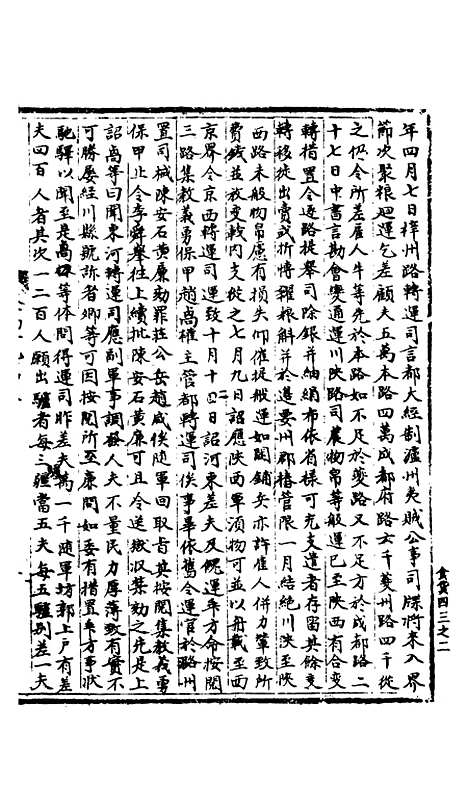 年四月七日梓州路轉運司言都大經制瀘州夷賊公事司牒將來入界
節次聚粮廻運乞差顧夫五萬本路四萬成都府路六千夔州路四千從
之仍令所差雇人牛等先於本路如不足於夔路又不足方於成都路二
十七日中書言勘會變通運川陝路司農物帛等般運已至陝西有合變
轉措置令逐路提舉司除銀并紬絹布依省樣可充支遣者存留其餘變
轉移徙出賣或折博糴粮斛并於邊要州郡樁管限一月結絶川陝至陝
西路未般物帛慮有損失仰催促般運如闕鋪兵亦許雇人併力輦致所
費錢並於變轉内支從之七月九日詔應陝西軍須物可並以舟載至西
京界令京西轉運司運致十月十四日詔河東差夫及餽運卒方命按閱
三路集教義勇保甲趙卨權主管都轉運司俟事畢依舊令運官於潞州
置司械陳安石黄廉劾罪莊公岳趙咸俟隨軍回取旨其按閱集教義勇
保甲止令李舜舉往上續批陳安石黄廉可且令送獄収禁劾之先是上
詔卨等曰聞東河轉運司應副軍事調發人夫不量民力厚薄致有實不
可勝屢經川縣號訴者卿等可因按閱所至廉問如委有措置乖方事狀
馳驛以聞至是卨等体問得運司昨差夫萬一千隨軍坊郭上戶有差
夫四百人者其次一二百人願出驢者每三驢當五夫每五驢别差一夫
食貨四三之二